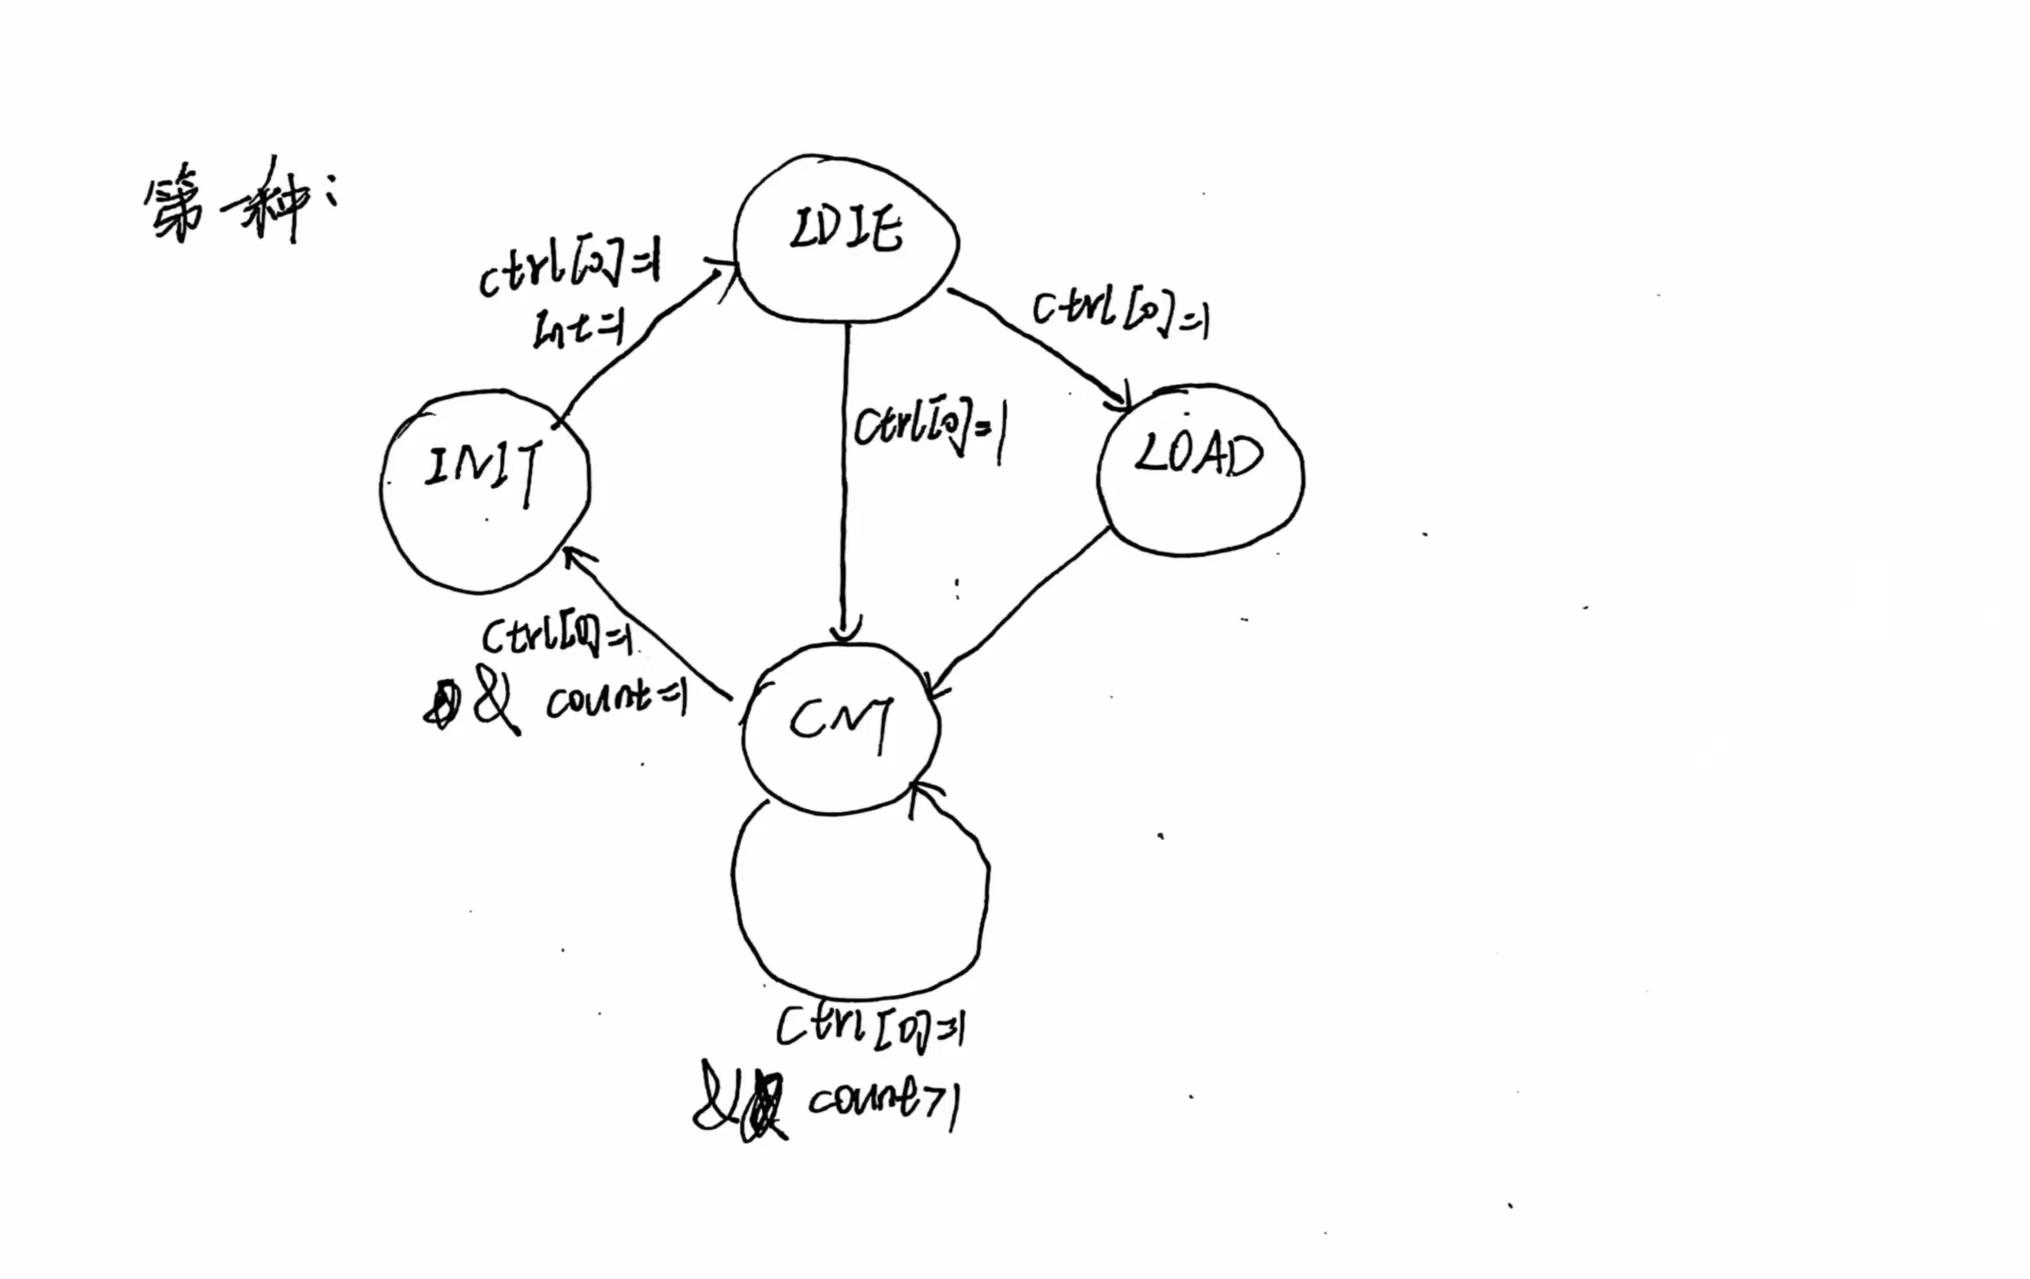 第一种:
LDIE
ctrl[0]=1
Int=1
ctrl[0]=1
ctrl[0]=1
INIT
LOAD
ctrl[0]=1
& count=1
CNT
ctrl[0]=1
& count>1